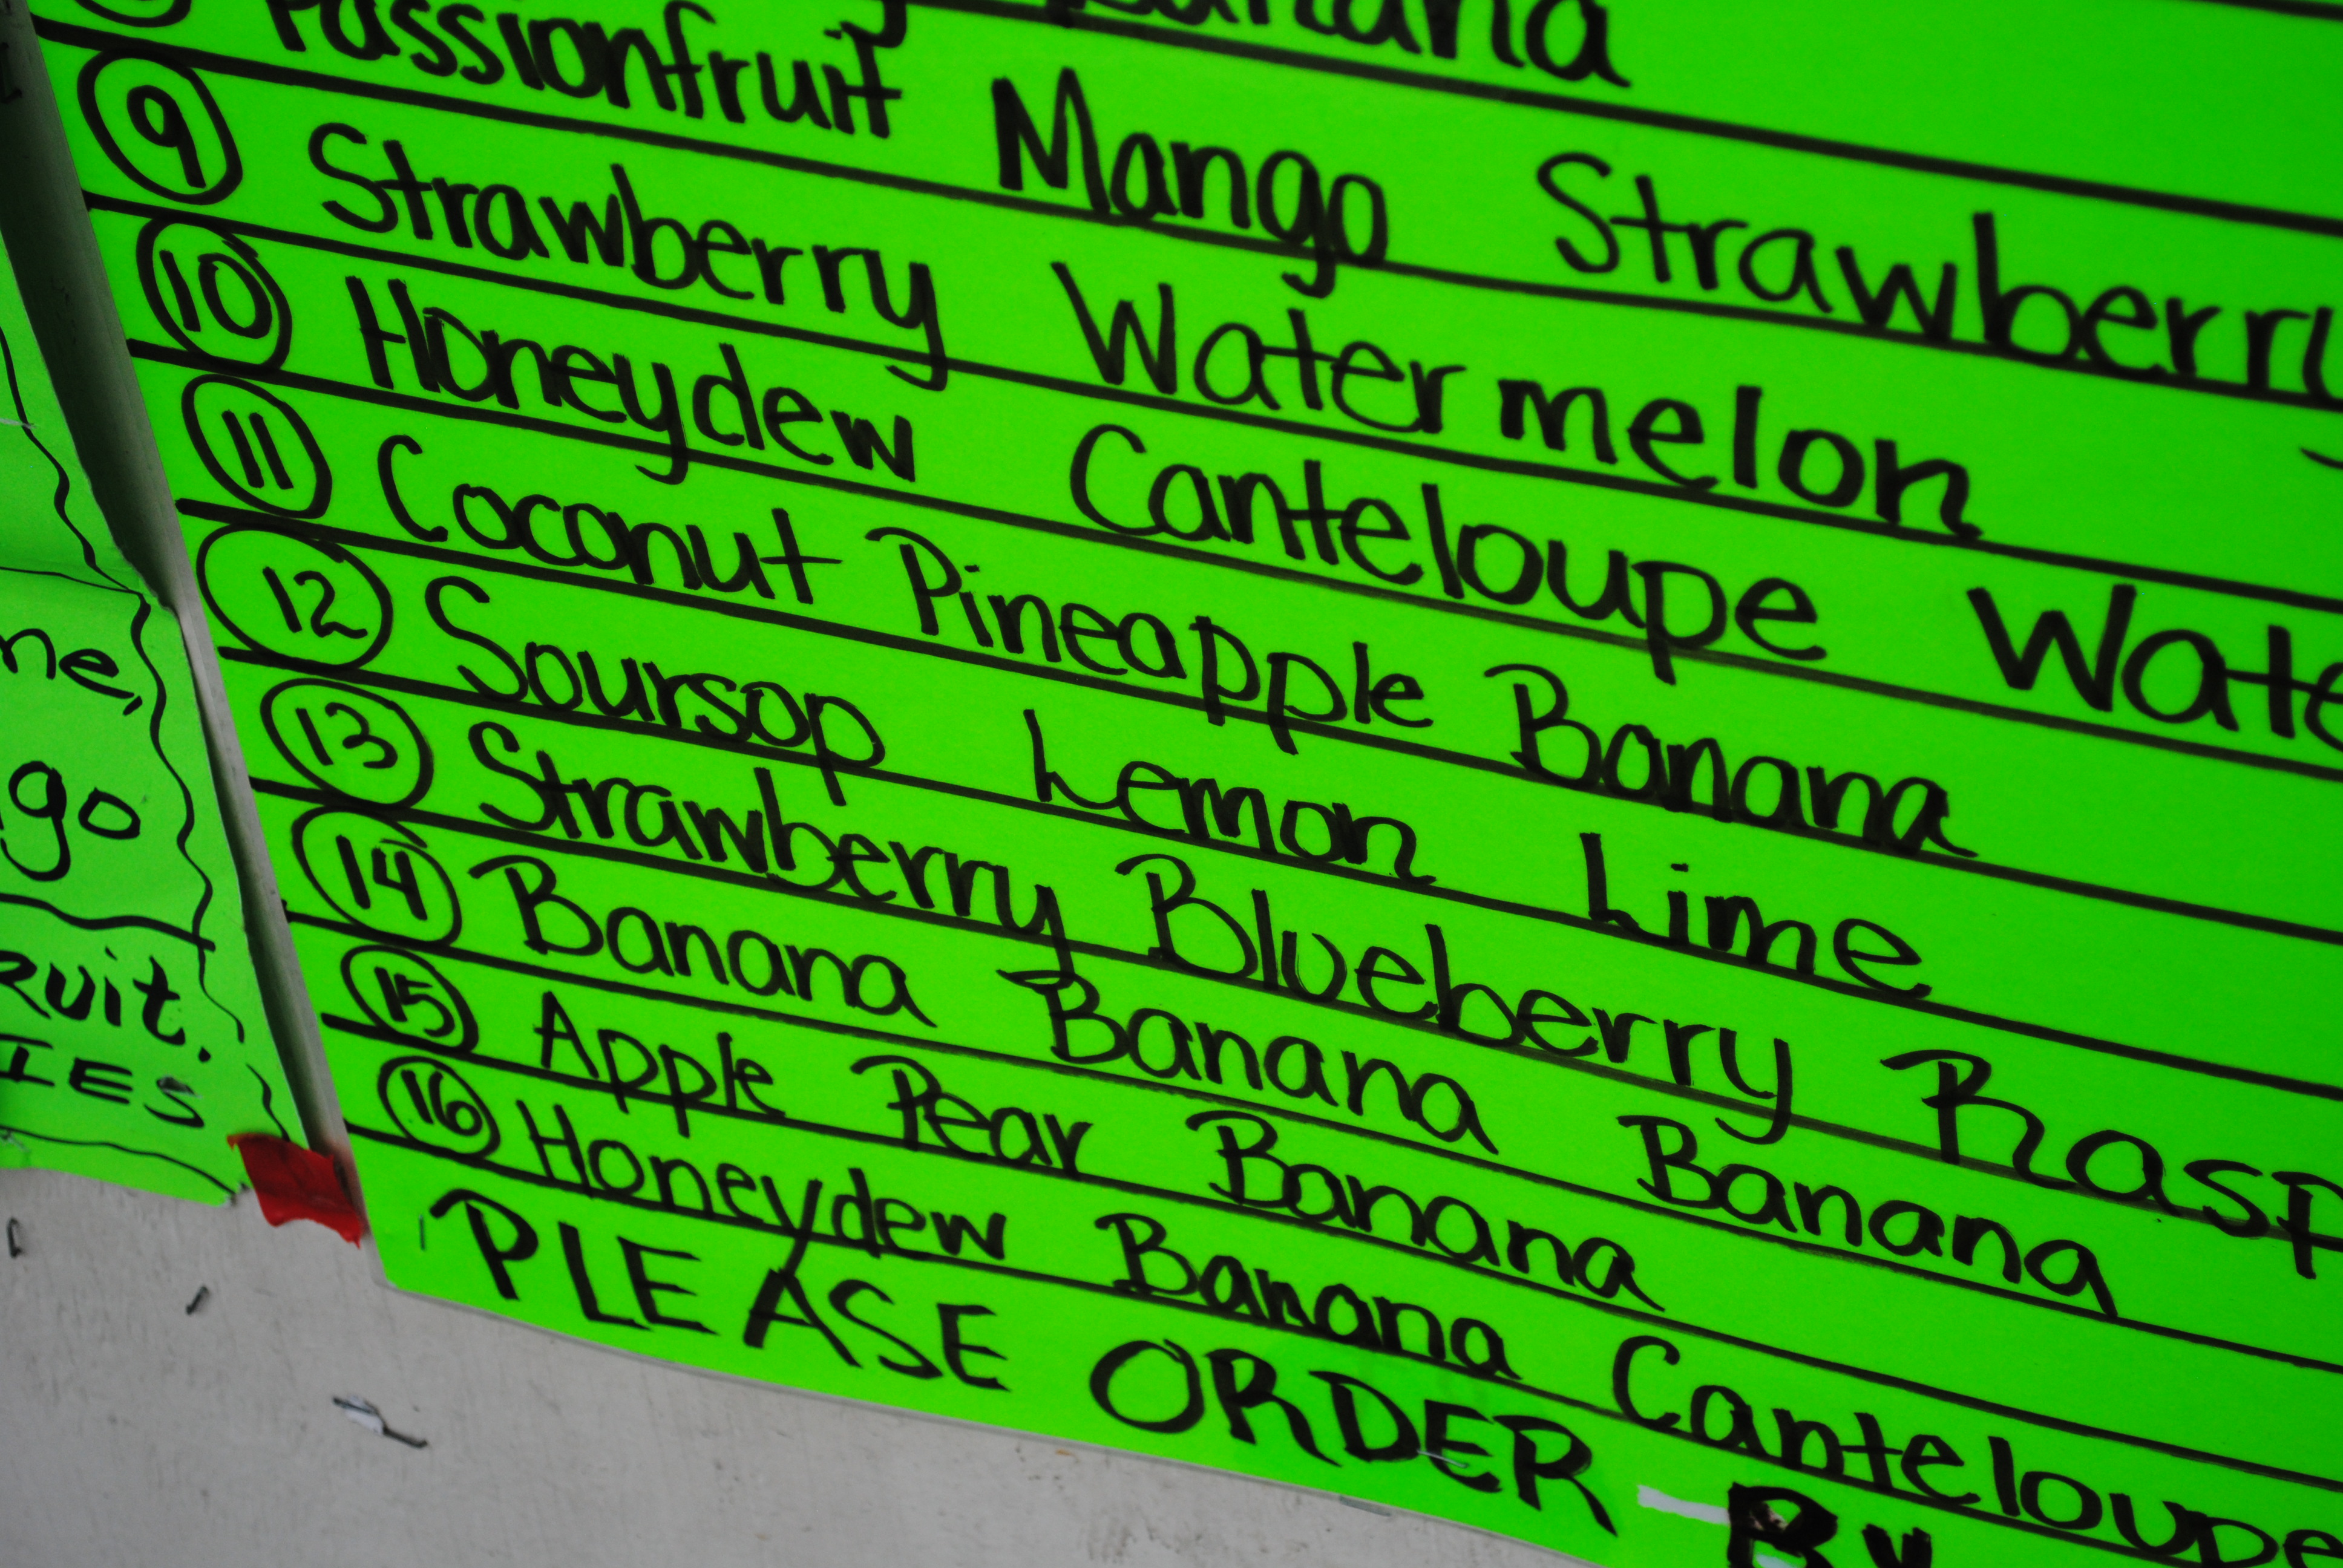 Banana
Passionfruit Mango Strawberry
9 Strawberry Watermelon
10 Honeydew Canteloupe Wate
11 Coconut Pineapple Banana
12 Soursop Lemon Lime
13 Strawberry Blueberry Rasp
14 Banana Banana Banana
15 Apple Pear Banana
16 Honeydew Banana Canteloupe
PLEASE ORDER BY
ne,
go
RUIT.
IES